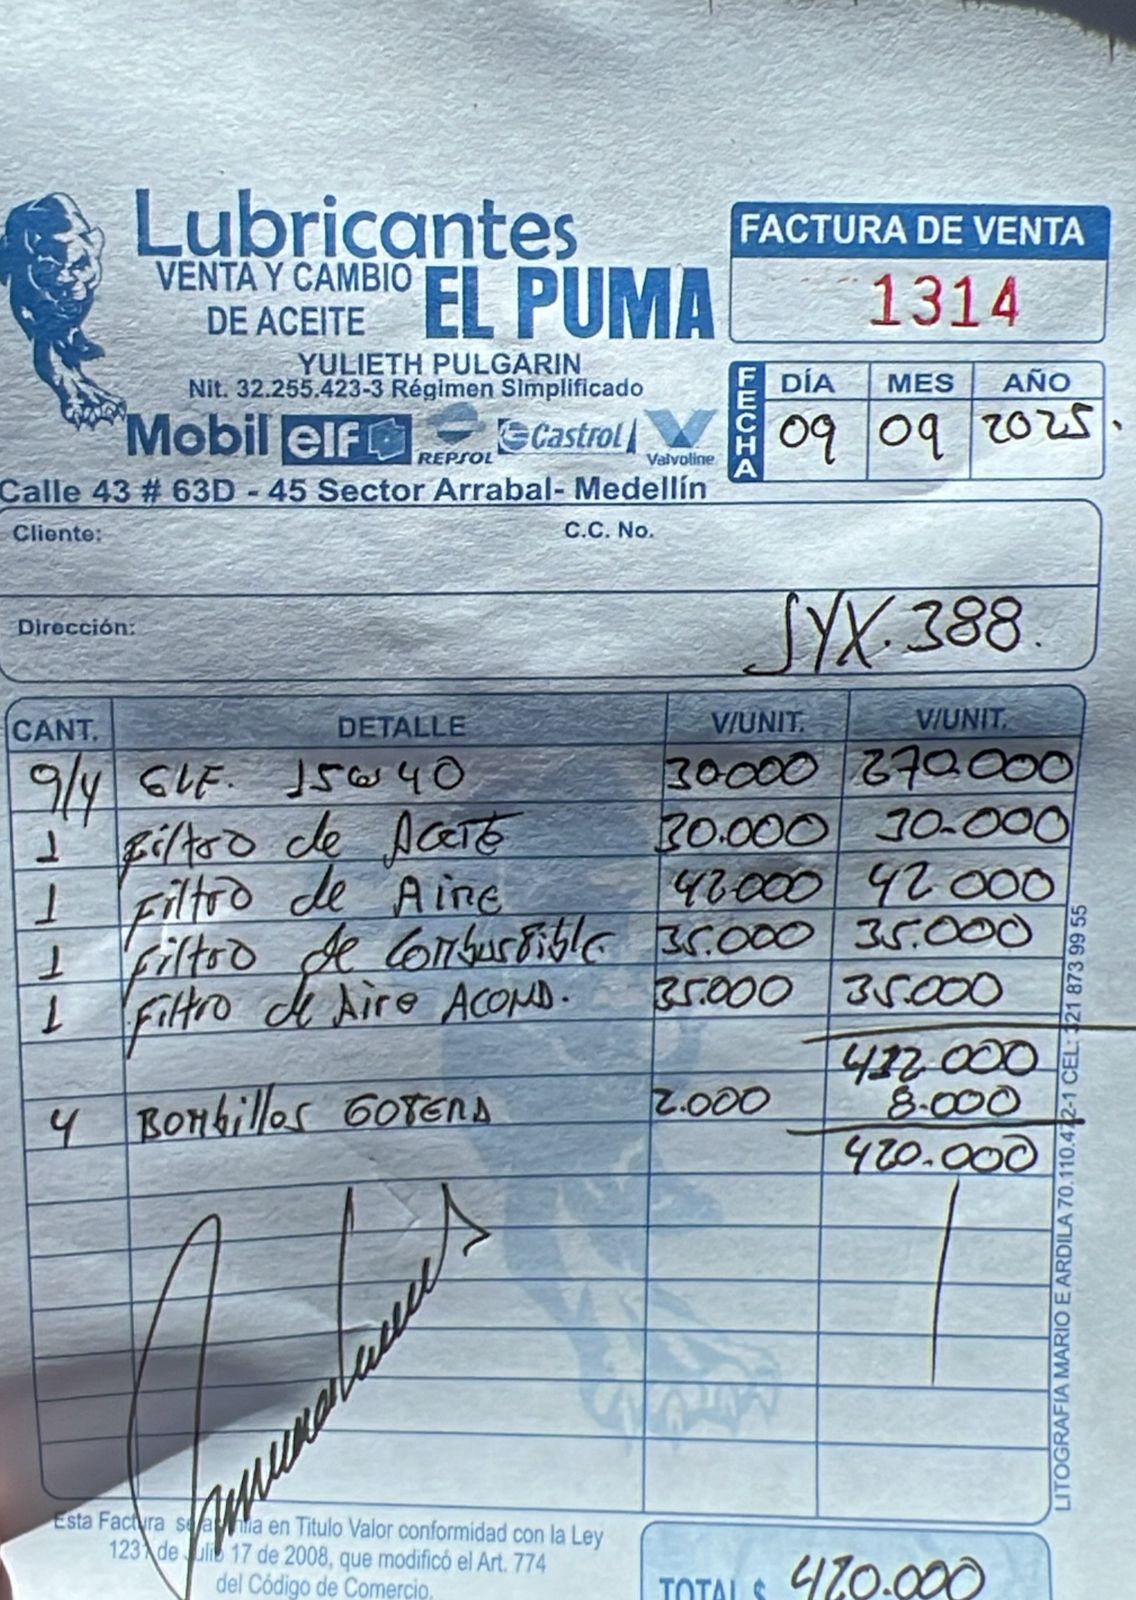 Lubricantes
VENTA Y CAMBIO
DE ACEITE
EL PUMA
YULIETH PULGARIN
Nit. 32.255.423-3 Régimen Simplificado
Mobil elf REPSOL Castrol Valvoline
Calle 43 # 63D - 45 Sector Arrabal- Medellín
FACTURA DE VENTA
1314
FECHA
DÍA MES AÑO
09 09 2025.
Cliente: C.C. No.
Dirección: SYX.388.
CANT. DETALLE V/UNIT. V/UNIT.
9/4 ELF. 15W40 30.000 270.000
1 Filtro de Aceite 30.000 30.000
1 Filtro de Aire 42.000 42.000
1 Filtro de Combustible 35.000 35.000
1 Filtro de Aire ACOND. 35.000 35.000
412.000
4 Bombillos GOTERA 2.000 8.000
420.000
LITOGRAFIA MARIO E ARDILA 70.110.472-1 CEL: 321 873 99 55
Esta Factura se asimila en Titulo Valor conformidad con la Ley
1231 de Julio 17 de 2008, que modificó el Art. 774
del Código de Comercio.
TOTAL $ 420.000